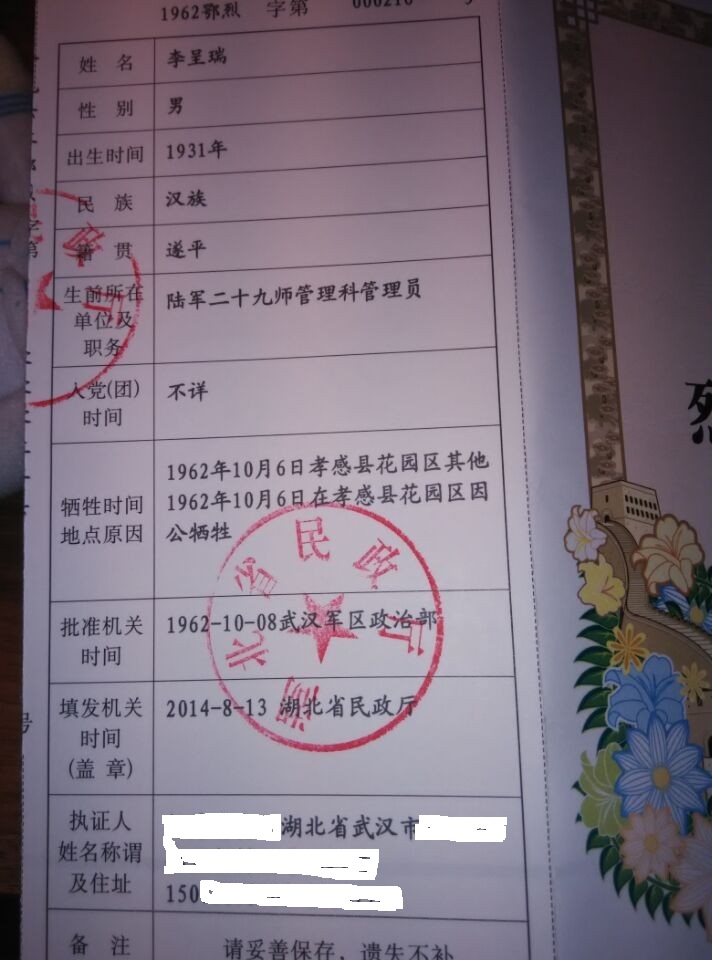 1962鄂烈 字第 000210 号
姓 名 李呈瑞
性 别 男
出生时间 1931年
民 族 汉族
籍 贯 遂平
生前所在
单位及
职务
陆军二十九师管理科管理员
入党(团)
时间
不详
牺牲时间
地点原因
1962年10月6日孝感县花园区其他
1962年10月6日在孝感县花园区因
公牺牲
湖北省民政厅
批准机关
时间
1962-10-08武汉军区政治部
填发机关
时间
(盖 章)
2014-8-13 湖北省民政厅
执证人
姓名称谓
及住址
湖北省武汉市
150
备 注 请妥善保存，遗失不补
烈